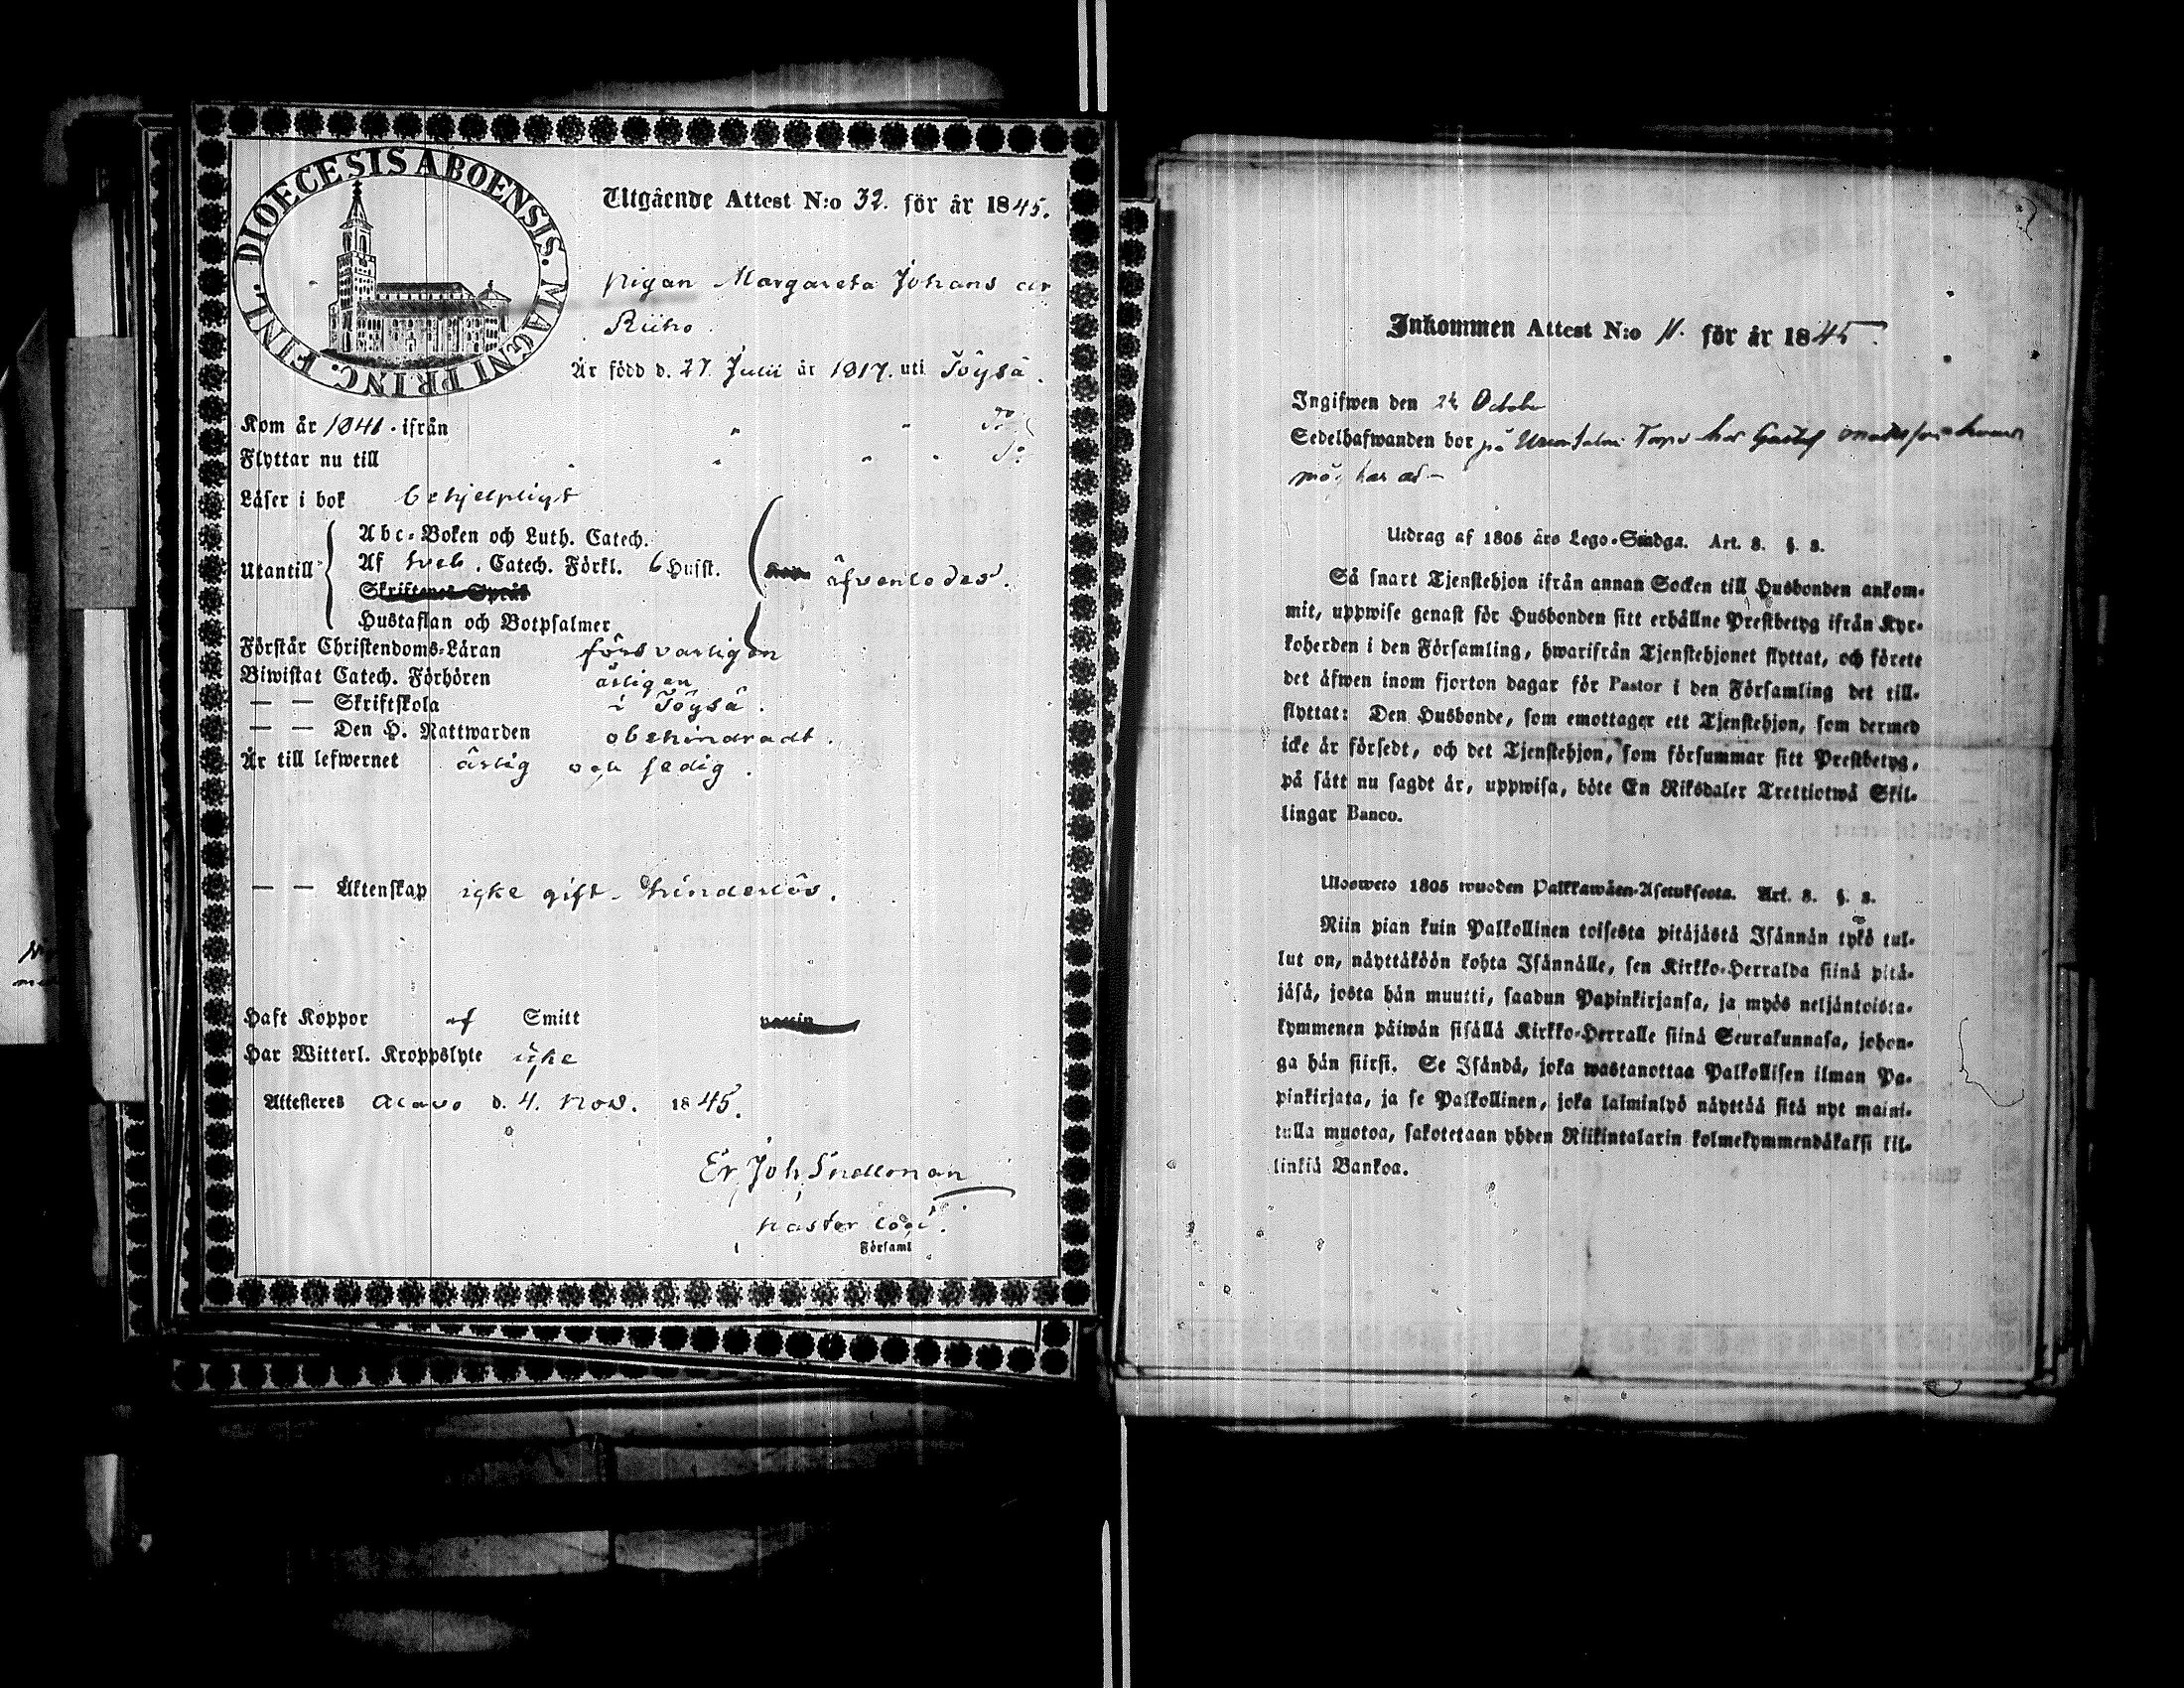 DIOECESIS ABOENSIS. MAGNI PRINC. FINL.
Utgående Attest N:o 32. för år 1845.
pigan Margareta Johans dr
Riiho
Är född d. 27. Julii år 1817. uti Töysä.
Kom år 1841. ifrån " " Do
Flyttar nu till " " " " Do
Läser i bok behjelpligt
Utantill
Abc-Boken och Luth. Catech.
Af Sveb. Catech. Förkl. 6 Hufst.
Skriftenes Språk
Hustaflan och Botpsalmer
äfvenledes.
Förstår Christendoms-Läran försvarligen
Biwistat Catech. Förhören årligen
— — Skriftskola i Töysä.
— — Den H. Nattward­en obehindradt.
Är till lefwernet ärlig och sedig.
— — Äktenskap icke gift. hinderlös.
Haft Koppor af Smitt vaccin
Har Witterl. Kroppslyte icke
Attesteres Alavo d. 4. Nov. 1845.
Er. Joh. Snellman
pastor loci.
i Församl
Inkommen Attest N:o 11. för år 1845.
Ingifwen den 24 October
Sedelhafwanden bor på hos Gustaf Mattsson
har
Utdrag af 1805 års Lego-Stadga. Art. 8. §. 8.
Så snart Tjenstehjon ifrån annan Socken till Husbonden ankom-
mit, uppwise genast för Husbonden sitt erhållne Prestbetyg ifrån Kyr-
koherden i den Församling, hwarifrån Tjenstehjonet flyttat, och förete
det äfwen inom fjorton dagar för Pastor i den Församling det till-
flyttat: Den Husbonde, som emottager ett Tjenstehjon, som dermed
icke är försedt, och det Tjenstehjon, som försummar sitt Prestbetyg,
på sätt nu sagdt är, uppwisa, böte En Riksdaler Trettiotwå Skil-
lingar Banco.
Ulosweto 1805 wuoden Palkkawäen-Asetuksesta. Art. 8. §. 8.
Niin pian kuin Palkollinen toisesta pitäjästä Isännän tykö tul-
lut on, näyttäköön kohta Isännälle, sen Kirkko-Herralda siinä pitä-
jäsä, josta hän muutti, saadun Papinkirjansa, ja myös neljäntoista-
kymmenen päiwän sisällä Kirkko-Herralle siinä Seurakunnasa, johon-
ga hän siirsi. Se Isändä, joka wastanottaa Palkollisen ilman Pa-
pinkirjata, ja se Palkollinen, joka laiminlyö näyttää sitä nyt maini-
tulla muotoa, sakotetaan yhden Riikintalarin kolmekymmendäkaksi kil-
linkiä Bankoa.